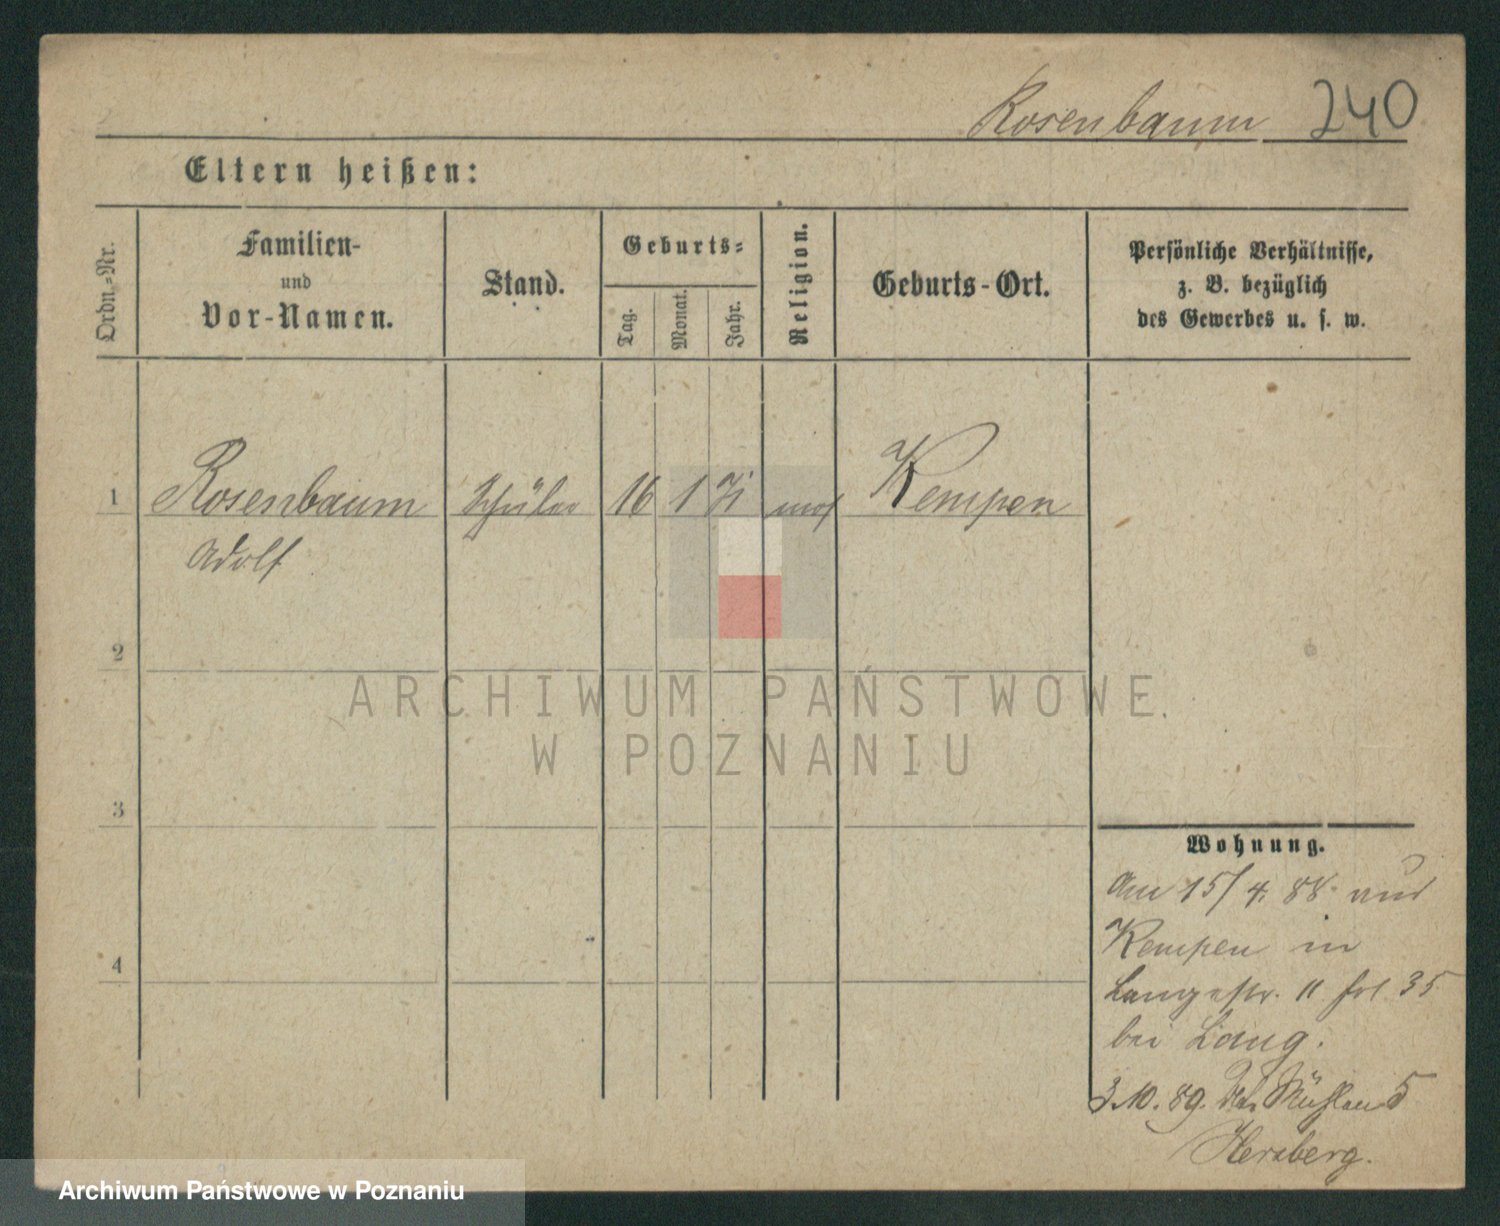 Rosenbaum 240
Eltern heißen:
Ordn.-Nr.
Familien-
und
Vor-Namen.
Stand.
Geburts-
Tag.
Monat.
Jahr.
Religion.
Geburts-Ort.
Persönliche Verhältnisse,
z. B. bezüglich
des Gewerbes u. s. w.
1 Rosenbaum Schüler 16 1 mos Kempen
Adolf
2
3
4
Wohnung.
Am 15/4. 88. aus
Kempen in
Langestr. 11 fol 35
bei Lang.
3.10.89. Mühlen 5
Herzberg.
ARCHIWUM PAŃSTWOWE
W POZNANIU
Archiwum Państwowe w Poznaniu